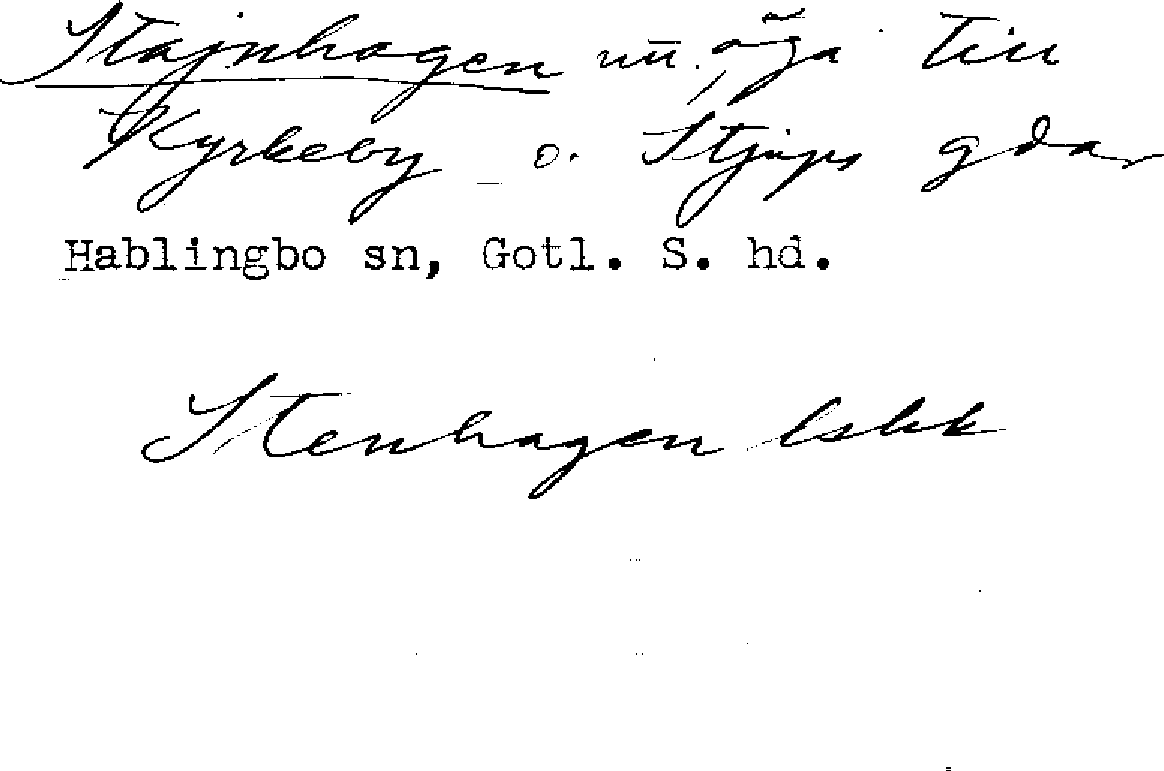 Stajnhagen nu. äga till
Kyrkeby o. Stjups gdar
Hablingbo sn, Gotl. S. hd.
Stenhagen lskk